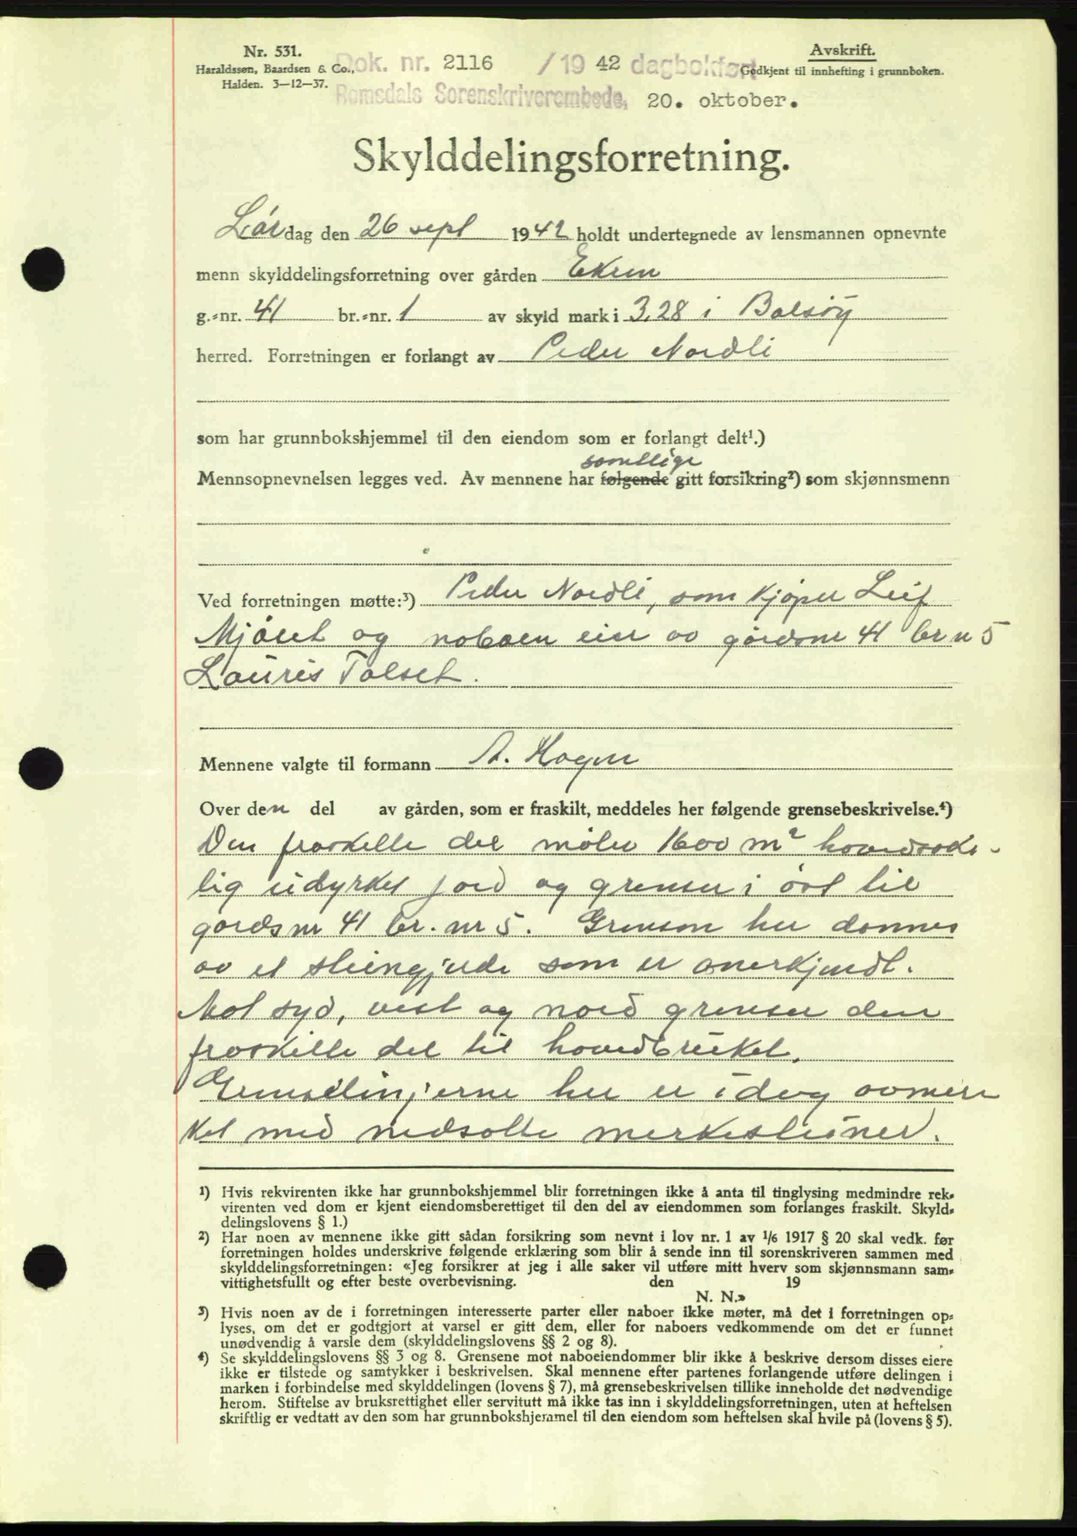 Nr. 531.
Haraldssøn, Baardsen & Co.,
Halden. 3—12—37.
Dok. nr. 2116 /19 42 dagbokført
Romsdals Sorenskriverembede, 20. oktober.
Avskrift.
Godkjent til innhefting i grunnboken.
Skylddelingsforretning.
Lørdag den 26 sept 1942 holdt undertegnede av lensmannen opnevnte
menn skylddelingsforretning over gården Ekren
g.-nr. 41 br.-nr. 1 av skyld mark i 3,28 i Bolsøy
herred. Forretningen er forlangt av Peder Nordli
som har grunnbokshjemmel til den eiendom som er forlangt delt¹.)
samtlige
Mennsopnevnelsen legges ved. Av mennene har følgende gitt forsikring²) som skjønnsmenn
Ved forretningen møtte:³) Peder Nordli, som kjøper Leif
Mjåset og naboen eier av gårdsnr 41 br n 5
Lauris Talset.
Mennene valgte til formann A. Hagen
Over den del av gården, som er fraskilt, meddeles her følgende grensebeskrivelse.⁴)
Den fraskille del måler 1600 m² hovedsake-
lig udyrket jord og grenser i øst til
gårdsnr 41 br. nr 5. Grensen her dannes
av et steingjerde som er anerkjendt.
Mot syd, vest og nord grenser den
fraskille del til hovedbruket.
Grenselinjerne her er idag avmer
ket med nedsatte merkesteiner.
¹) Hvis rekvirenten ikke har grunnbokshjemmel blir forretningen ikke å anta til tinglysing medmindre rek-
virenten ved dom er kjent eiendomsberettiget til den del av eiendommen som forlanges fraskilt. Skyld-
delingslovens § 1.)
²) Har noen av mennene ikke gitt sådan forsikring som nevnt i lov nr. 1 av 1/6 1917 § 20 skal vedk. før
forretningen holdes underskrive følgende erklæring som blir å sende inn til sorenskriveren sammen med
skylddelingsforretningen: «Jeg forsikrer at jeg i alle saker vil utføre mitt hverv som skjønnsmann sam-
vittighetsfullt og efter beste overbevisning. den 19
N. N.»
³) Hvis noen av de i forretningen interesserte parter eller naboer ikke møter, må det i forretningen op-
lyses, om det er godtgjort at varsel er gitt dem, eller for naboers vedkommende om det er funnet
unødvendig å varsle dem (skylddelingslovens §§ 2 og 8).
⁴) Se skylddelingslovens §§ 3 og 8. Grensene mot naboeiendommer blir ikke å beskrive dersom disses eiere
ikke er tilstede og samtykker i beskrivelsen. Skal mennene efter partenes forlangende utføre delingen i
marken i forbindelse med skylddelingen (lovens § 7), må grensebeskrivelsen tillike inneholde det nødvendige
herom. Stiftelse av bruksrettighet eller servitutt må ikke tas inn i skylddelingsforretningen, uten at heftelsen
skriftlig er vedtatt av den som har grunnbokshjemmel til den eiendom som heftelsen skal hvile på (lovens § 5).